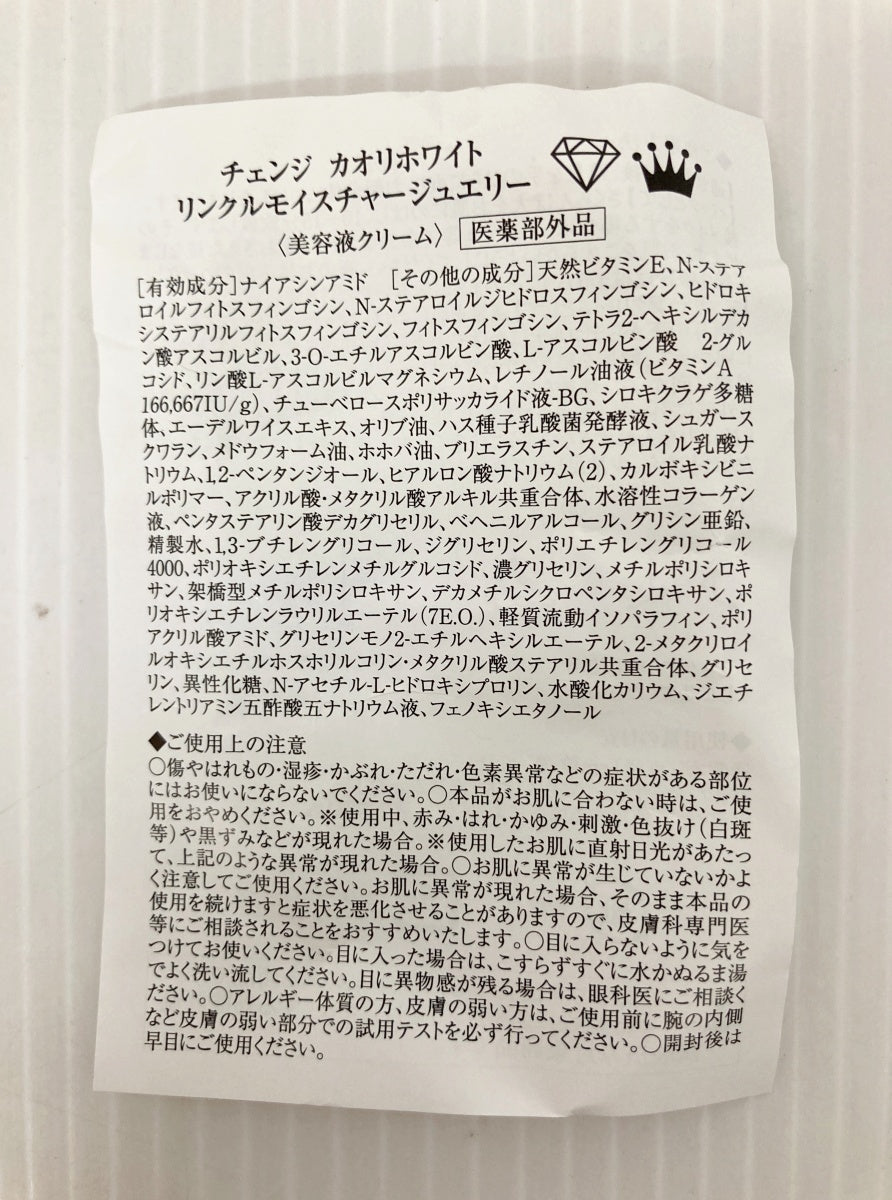 チェンジ カオリホワイト
リンクルモイスチャージュエリー
〈美容液クリーム〉 医薬部外品
[有効成分]ナイアシンアミド [その他の成分]天然ビタミンE、N-ステア
ロイルフィトスフィンゴシン、N-ステアロイルジヒドロスフィンゴシン、ヒドロキ
システアリルフィトスフィンゴシン、フィトスフィンゴシン、テトラ2-ヘキシルデカ
ン酸アスコルビル、3-O-エチルアスコルビン酸、L-アスコルビン酸 2-グル
コシド、リン酸L-アスコルビルマグネシウム、レチノール油液(ビタミンA
166,667IU/g)、チューベロースポリサッカライド液-BG、シロキクラゲ多糖
体、エーデルワイスエキス、オリブ油、ハス種子乳酸菌発酵液、シュガース
クワラン、メドウフォーム油、ホホバ油、ブリエラスチン、ステアロイル乳酸ナ
トリウム、1,2-ペンタンジオール、ヒアルロン酸ナトリウム(2)、カルボキシビニ
ルポリマー、アクリル酸・メタクリル酸アルキル共重合体、水溶性コラーゲン
液、ペンタステアリン酸デカグリセリル、ベヘニルアルコール、グリシン亜鉛、
精製水、1,3-ブチレングリコール、ジグリセリン、ポリエチレングリコール
4000、ポリオキシエチレンメチルグルコシド、濃グリセリン、メチルポリシロキ
サン、架橋型メチルポリシロキサン、デカメチルシクロペンタシロキサン、ポ
リオキシエチレンラウリルエーテル(7E.O.)、軽質流動イソパラフィン、ポリ
アクリル酸アミド、グリセリンモノ2-エチルヘキシルエーテル、2-メタクリロイ
ルオキシエチルホスホリルコリン・メタクリル酸ステアリル共重合体、グリセ
リン、異性化糖、N-アセチル-L-ヒドロキシプロリン、水酸化カリウム、ジエチ
レントリアミン五酢酸五ナトリウム液、フェノキシエタノール
◆ご使用上の注意
○傷やはれもの・湿疹・かぶれ・ただれ・色素異常などの症状がある部位
にはお使いにならないでください。○本品がお肌に合わない時は、ご使
用をおやめください。※使用中、赤み・はれ・かゆみ・刺激・色抜け(白斑
等)や黒ずみなどが現れた場合。※使用したお肌に直射日光があたっ
て、上記のような異常が現れた場合。○お肌に異常が生じていないかよ
く注意してご使用ください。お肌に異常が現れた場合、そのまま本品の
使用を続けますと症状を悪化させることがありますので、皮膚科専門医
等にご相談されることをおすすめいたします。○目に入らないように気を
つけてお使いください。目に入った場合は、こすらずすぐに水かぬるま湯
でよく洗い流してください。目に異物感が残る場合は、眼科医にご相談く
ださい。○アレルギー体質の方、皮膚の弱い方は、ご使用前に腕の内側
など皮膚の弱い部分での試用テストを必ず行ってください。○開封後は
早目にご使用ください。